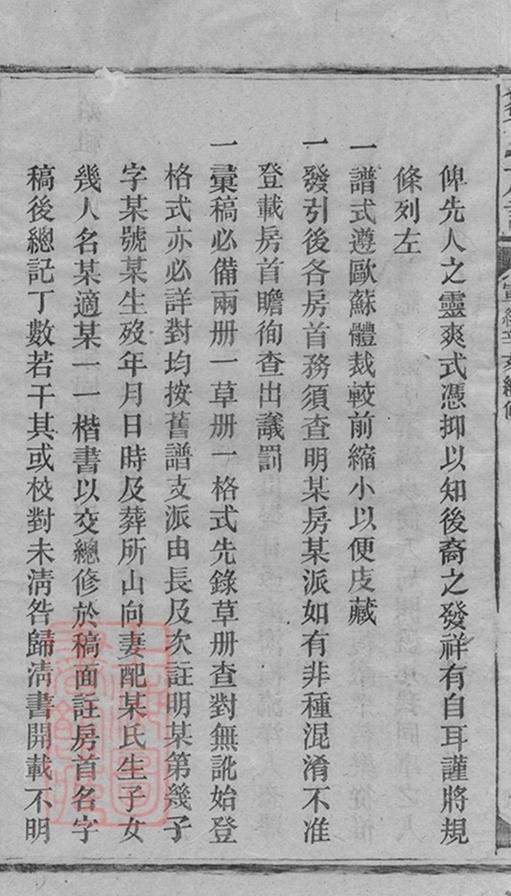 俾先人之靈爽式憑抑以知後裔之發祥有自耳謹將規
條列左
一譜式遵歐蘇體裁較前縮小以便庋藏
一發引後各房首務須查明某房某派如有非種混淆不准
登載房首瞻徇查出議罰
一彙稿必備兩册一草册一格式先錄草册查對無訛始登
格式亦必詳對均按舊譜支派由長及次註明某第幾子
字某號某生歿年月日時及葬所山向妻配某氏生子女
幾人名某適某一一楷書以交總修於稿面註房首名字
稿後總記丁數若干其或校對未淸咎歸淸書開載不明